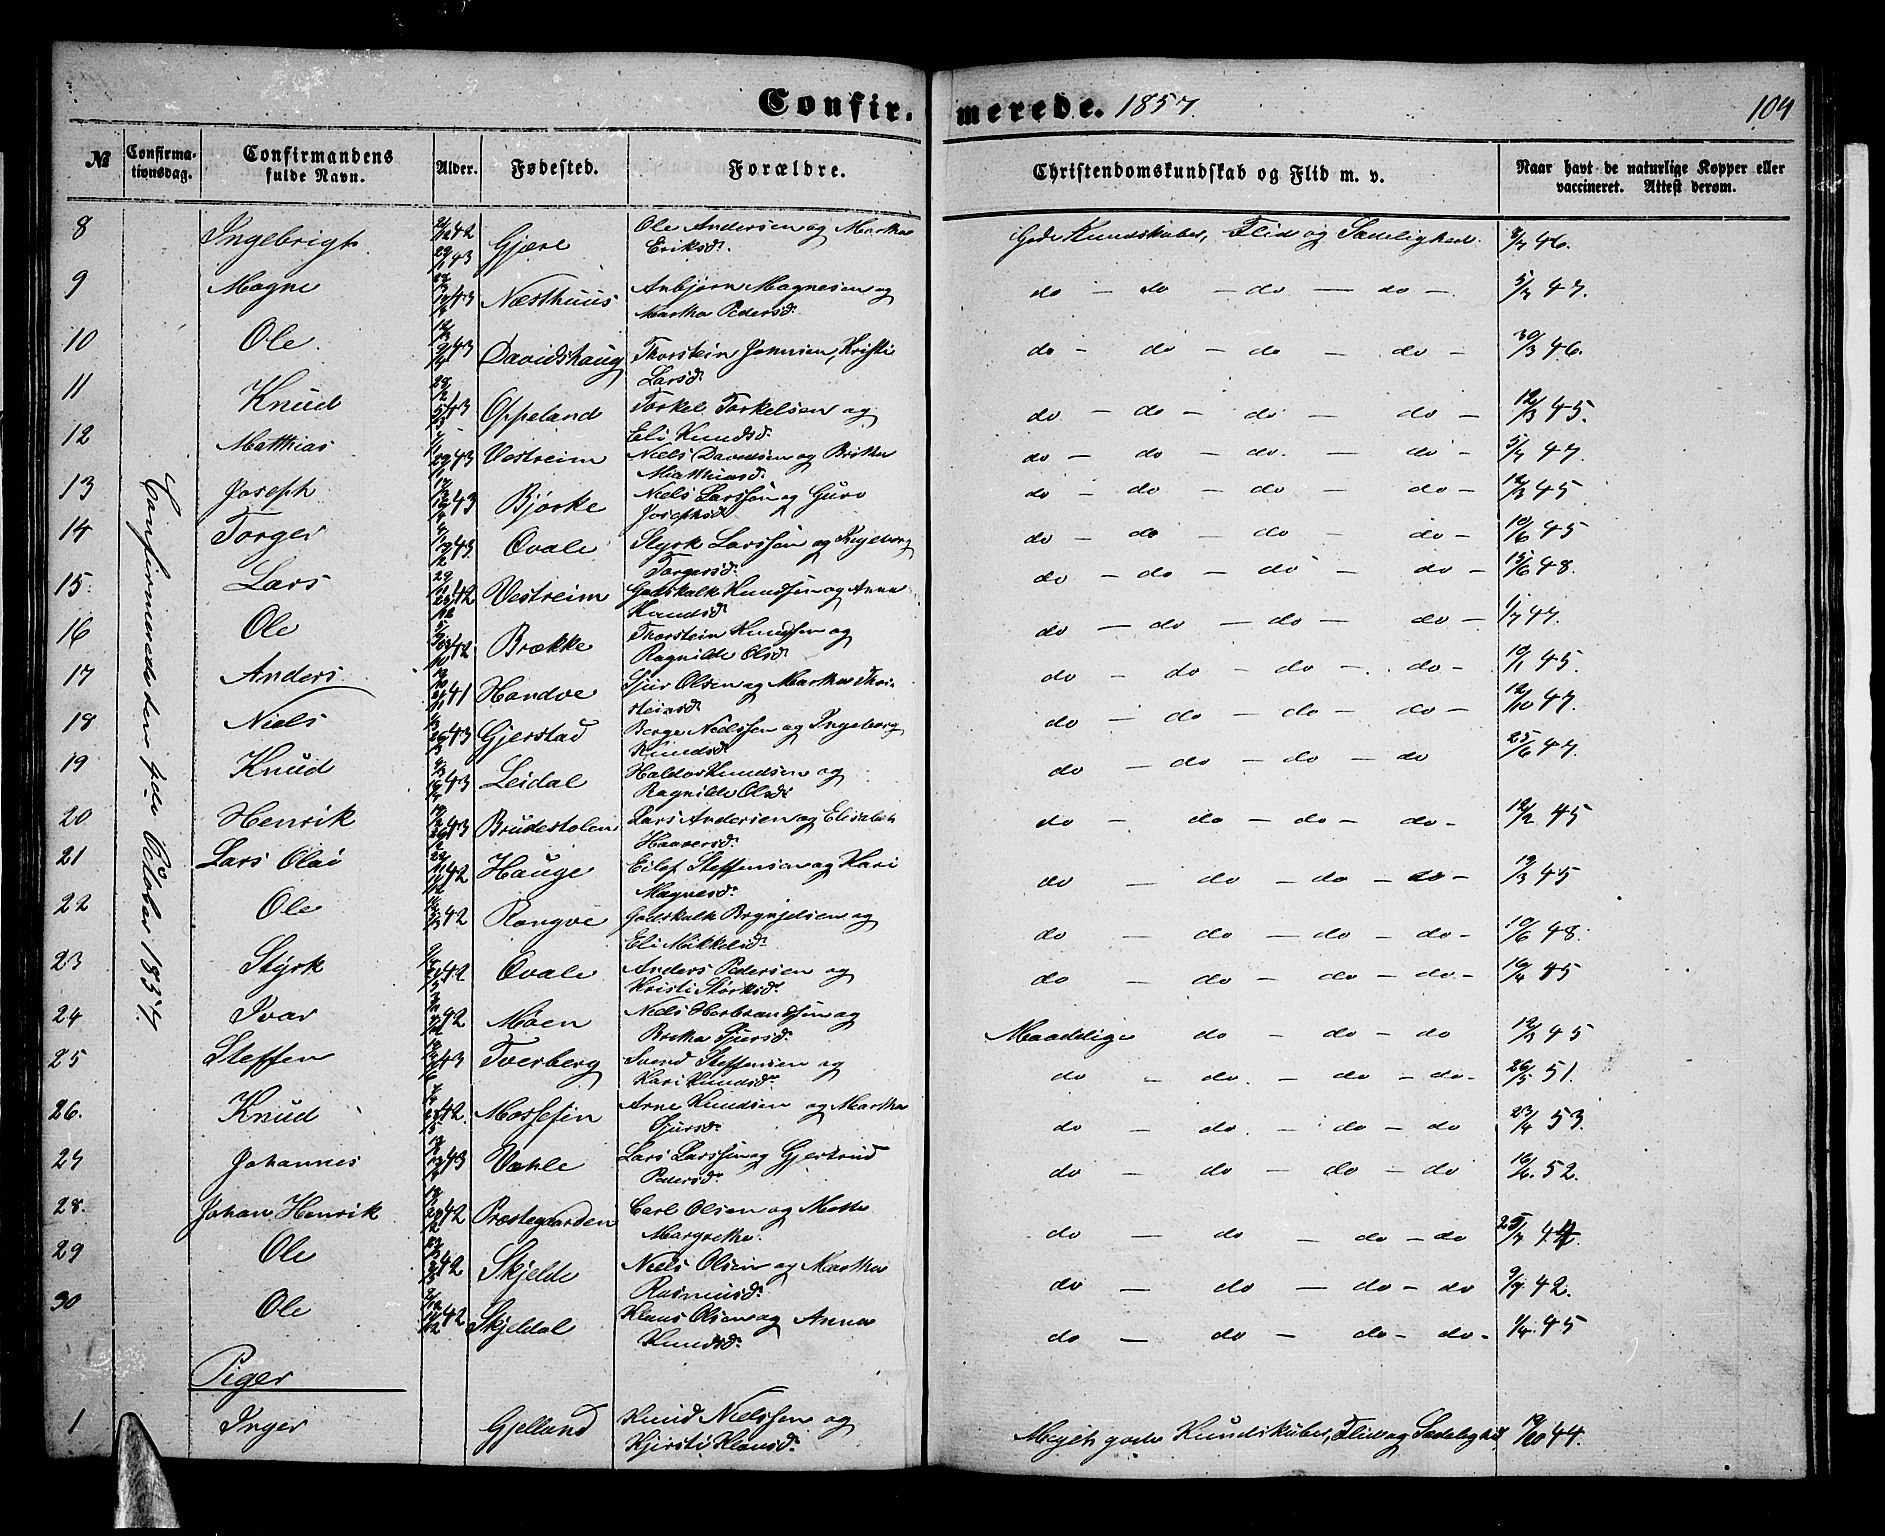 Confirmerede. 1857. 104
№ Confirmationsdag. Confirmandens fulde Navn. Alder. Fødested. Forældre. Christendomskundskab og Flid m. v. Naar havt de naturlige Kopper eller vaccineret. Attest derom.
Confirmerede den 4de October 1857.
8 Ingebrigt 42 Gjære Ole Andersen og Martha Eriksd. Gode Kundskaber, Flid og Sædelighed 46.
9 Magne 43 Næsthuus Anbjørn Magnesen og Martha Pedersd. do — do — do — do — 5/7 47.
10 Ole 43 Davidshaug Thorstein Johnsen, Kristi Larsd. do — do — do — do — 30/3 46.
11 Knud 43 Oppeland Torkel Torkelsen og Eli Knudsd. do — do — do — do — 12/3 45.
12 Matthias 43 Vestreim Niels Davidsen og Britha Matthiasd. do — do — do — do — 5/7 47
13 Joseph 43 Bjørke Niels Larssøn og Guro Josephsd. do — do — do — do — 12/3 45
14 Torger 43 Qvale Styrk Larssøn og Ingeborg Torgersd. do — do — do — do — 10/6 45
15. Lars 42 Vestreim Godskalk Knudsøn og Anna Knudsd. do — do — do — do — 15/6 48.
16 Ole 42 Brække Thorstein Knudsøn og Ragnilde Olsd. do — do — do — do — 1/7 47.
17 Anders 41 Handve Sjur Olsen og Martha Thorsteinsd. do — do — do — do — 10/1 45.
18 Niels 43 Gjerstad Børge Nielssen og Ingeborg Knudsd. do — do — do — do — 12/10 47.
19 Knud 43 Leidal Haldor Knudsen og Ragnilde Olsd. do — do — do — do 25/6 47
20 Henrik 43 Brudestolen Lars Andersen og Elisabeth Haaversd. do — do — do — do — 12/2 45
21 Lars Olai 42 Hauge Eilef Steffensen og Kari Magnesd. do — do — do — do — 19/3 45
22 Ole 42 Rongve Godskalk Brynjelsen og Eli Mikkelsd. do — do — do — do — 10/6 48.
23 Styrk 42 Qvale Anders Pedersen og Kristi Størksd. do — do — do — do — 45
24 Ivar 42 Møen Niels Herbrandsøn og Britha Sjursd. Maadelige do — do — do 12/3 45
25 Steffen 43 Tverberg Svend Steffensen og Kari Knudsd. do — do — do — do — 26/5 51.
26. Knud 42 Mossefin Arne Knudsen og Martha Sjursd. do — do — do — do 23/4 53.
27 Johannes 43 Væhle Lars Larssen og Gjertrud Pedersd. do — do — do — do 52.
28. Johan Henrik 42 Præstegaarden Carl Olsen og Mette Margrethe. do — do — do — do 25/7 44.
29 Ole 42 Skjelde Niels Olsen og Martha Rasmusd. do — do — do — do 42.
30 Ole 42 Skjeldal Klaus Olsen og Anna Knudsd. do — do — do — do — 45
Piger
1 Inger Gjelland Knud Nielssen og Kjersti Klausd. Meget gode Kundskaber, Flid og Sædelighed 19/10 44.